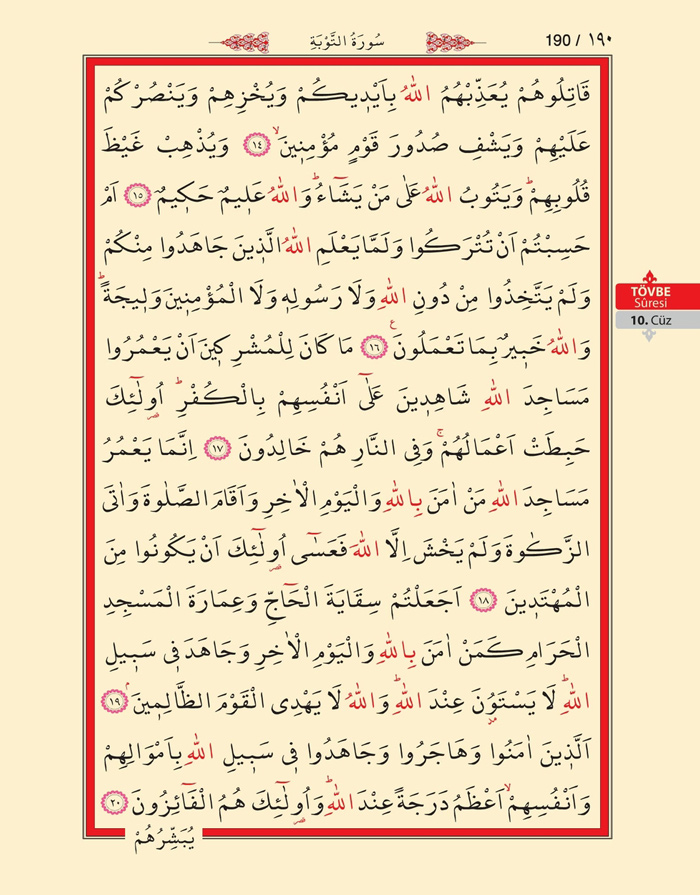 سُورَةُ التَّوْبَةِ
190 / ١٩٠
قَاتِلُوهُمْ يُعَذِّبْهُمُ اللّٰهُ بِاَيْد۪يكُمْ وَيُخْزِهِمْ وَيَنْصُرْكُمْ
عَلَيْهِمْ وَيَشْفِ صُدُورَ قَوْمٍ مُؤْمِن۪ينَۙ ﴿١٤﴾ وَيُذْهِبْ غَيْظَ
قُلُوبِهِمْۜ وَيَتُوبُ اللّٰهُ عَلٰى مَنْ يَشَٓاءُۜ وَاللّٰهُ عَل۪يمٌ حَك۪يمٌ ﴿١٥﴾ اَمْ
حَسِبْتُمْ اَنْ تُتْرَكُوا وَلَمَّا يَعْلَمِ اللّٰهُ الَّذ۪ينَ جَاهَدُوا مِنْكُمْ
وَلَمْ يَتَّخِذُوا مِنْ دُونِ اللّٰهِ وَلَا رَسُولِه۪ وَلَا الْمُؤْمِن۪ينَ وَل۪يجَةًۜ
وَاللّٰهُ خَب۪يرٌ بِمَا تَعْمَلُونَ۟ ﴿١٦﴾ مَا كَانَ لِلْمُشْرِك۪ينَ اَنْ يَعْمُرُوا
مَسَاجِدَ اللّٰهِ شَاهِد۪ينَ عَلٰٓى اَنْفُسِهِمْ بِالْكُفْرِۜ اُو۬لٰٓئِكَ
حَبِطَتْ اَعْمَالُهُمْۚ وَفِي النَّارِ هُمْ خَالِدُونَ ﴿١٧﴾ اِنَّمَا يَعْمُرُ
مَسَاجِدَ اللّٰهِ مَنْ اٰمَنَ بِاللّٰهِ وَالْيَوْمِ الْاٰخِرِ وَاَقَامَ الصَّلٰوةَ وَاٰتَى
الزَّكٰوةَ وَلَمْ يَخْشَ اِلَّا اللّٰهَ فَعَسٰٓى اُو۬لٰٓئِكَ اَنْ يَكُونُوا مِنَ
الْمُهْتَد۪ينَ ﴿١٨﴾ اَجَعَلْتُمْ سِقَايَةَ الْحَٓاجِّ وَعِمَارَةَ الْمَسْجِدِ
الْحَرَامِ كَمَنْ اٰمَنَ بِاللّٰهِ وَالْيَوْمِ الْاٰخِرِ وَجَاهَدَ ف۪ي سَب۪يلِ
اللّٰهِۜ لَا يَسْتَوُ۫نَ عِنْدَ اللّٰهِۜ وَاللّٰهُ لَا يَهْدِي الْقَوْمَ الظَّالِم۪ينَۢ ﴿١٩﴾
اَلَّذ۪ينَ اٰمَنُوا وَهَاجَرُوا وَجَاهَدُوا ف۪ي سَب۪يلِ اللّٰهِ بِاَمْوَالِهِمْ
وَاَنْفُسِهِمْۙ اَعْظَمُ دَرَجَةً عِنْدَ اللّٰهِۜ وَاُو۬لٰٓئِكَ هُمُ الْفَٓائِزُونَ ﴿٢٠﴾
يُبَشِّرُهُمْ
TÖVBE
Sûresi
10. Cüz